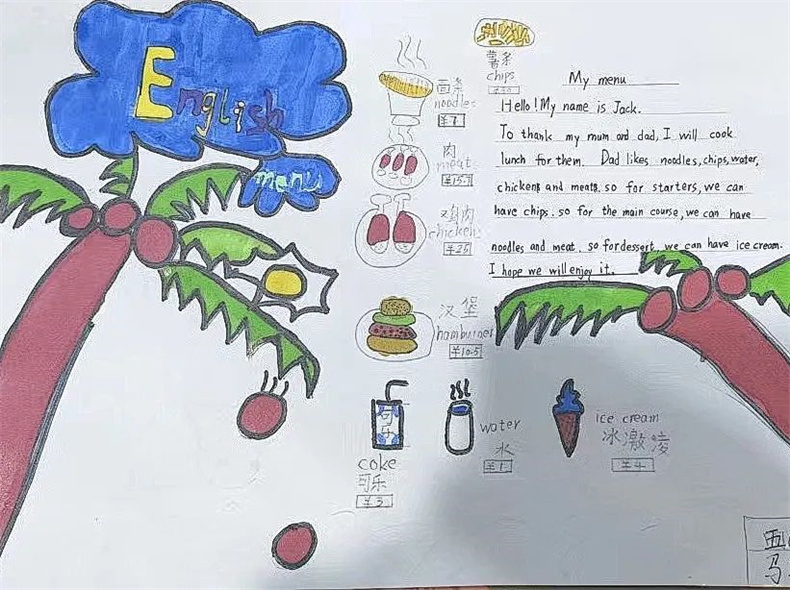 English
menu
薯条
chips
面条
noodles
¥7
肉
meat
鸡肉
chickens
¥25
汉堡
hamburger
¥10.5
可乐
coke
可乐
¥3
water
水
¥1
ice cream
冰激凌
¥4
My menu
Hello! My name is Jack.
To thank my mum and dad, I will cook
lunch for them. Dad likes noodles, chips, water,
chickens and meats. so for starters, we can
have chips. so for the main course, we can have
noodles and meat. so for dessert, we can have ice cream.
I hope we will enjoy it.
五
马